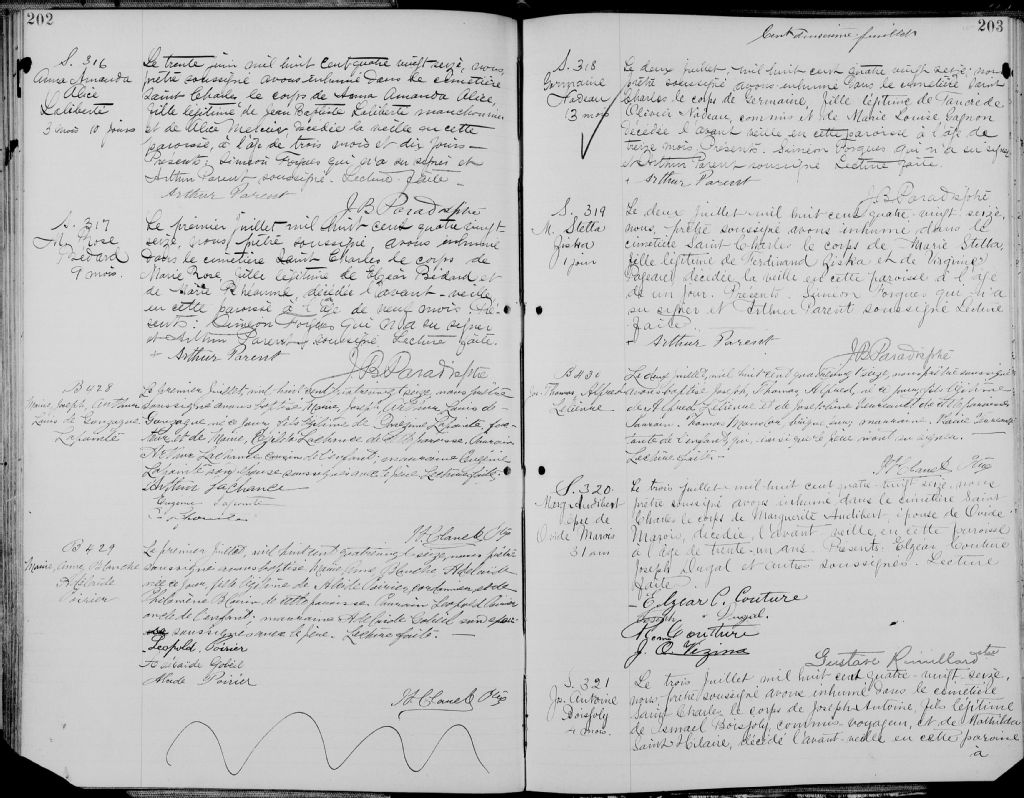 202
S. 316
Anna Amanda
Alice
Laliberté
3 mois 10 jours
Le trente juin mil huit cent quatre vingt seize, nous,
prêtre soussigné avons inhumé dans le cimetière
Saint Charles le corps de Anna Amanda Alice,
fille légitime de Jean Baptiste Laliberté manchonnier
et de Alice décédée la veille en cette
paroisse, à l'âge de trois mois et dix jours –
Présents: Siméon Forgues qui n'a su signer et
Arthur Parent soussigné. Lecture faite –
Arthur Parent
J B Paradis ptre
S. 317
M. Rose
Bédard
9 mois.
Le premier Juillet mil huit cent quatre vingt-
seize, nous prêtre soussigné, avons inhumé
dans le cimetière Saint Charles le corps de
Marie Rose, fille légitime de Elzéar Bédard et
de Marie décédée l'avant-veille
en cette paroisse à l'âge de neuf mois. Pré-
sents: Siméon Forgues qui n'a su signer
et Arthur Parent soussigné Lecture faite.
+ Arthur Parent
J B Paradis ptre
B 428
Marie, Joseph, Arthur
Louis de Gonzague
Lapointe
Le premier Juillet, mil huit cent quatrevingt seize, nous prêtre
soussigné avons baptisé Marie, Joseph, Arthur, Louis de
Gonzague, né ce jour, fils légitime de Lapointe,
et de Marie, Lachance de cette paroisse. Parrain
Arthur Lachance cousin de l'enfant; marraine Eugénie
Lapointe son épouse soussignés avec le père. Lecture faite.
Arthur LaChance
Eugénie Lapointe
B 429
Marie, Anne, Blanche
Adélaïde
Poirier
Le premier Juillet, mil huit cent quatrevingt seize, nous prêtre
soussigné avons baptisé Marie Anne Blanche Adélaïde
née ce jour, fille légitime de Alcide Poirier, cordonnier, et de
Philomène de cette paroisse. Parrain Léopold Poirier
oncle de l'enfant; marraine Adélaïde Gobeil son épou-
se soussignés avec le père. Lecture faite. —
Léopold Poirier
Adélaïde Gobeil
Alcide Poirier
203
Cent deuxième feuillet
S. 318
Germaine
Nadeau
13 mois
Le deux Juillet, mil huit cent quatre vingt seize, nous
prêtre soussigné avons inhumé dans le cimetière Saint
Charles le corps de Germaine, fille légitime de
Olivier Nadeau, commis et de Marie Louise Gagnon
décédée l'avant veille en cette paroisse à l'âge de
treize mois. Présents. Siméon Forgues qui n'a su signer
et Arthur Parent soussigné Lecture faite.
+ Arthur Parent
J B Paradis ptre
S. 319
M. Stella
Ziska
1 jour
Le deux Juillet mil huit cent quatre-vingt seize,
nous, prêtre soussigné avons inhumé dans le
cimetière Saint Charles le corps de Marie Stella,
fille légitime de Ferdinand Ziska et de Virginie
décédée, la veille en cette paroisse à l'âge
de un jour. Présents. Siméon Forgues qui n'a
su signer et Arthur Parent soussigné Lecture
faite
– Arthur Parent
J B Paradis ptre
B 430
Jos. Thomas Alfred
Le deux Juillet, mil huit cent quatrevingt seize, nous prêtre soussigné
avons baptisé Joseph, Thomas Alfred, né ce jour, fils légitime
de Alfred et de Joséphine de cette paroisse
Parrain Thomas marraine
tante de l'enfant qui, ainsi que le père n'ont su signer.
Lecture faite. –
S. 320
Marg Audibert
épse de
Ovide Marois
31 ans
Le trois Juillet mil huit cent quatre-vingt seize, nous
prêtre soussigné avons inhumé dans le cimetière Saint
Charles le corps de Marguerite Audibert, épouse de Ovide
Marois, décédée, l'avant-veille, en cette paroisse
à l'âge de trente-un ans. Présents: Elzéar Couture
Joseph Dugal et autres soussignés. Lecture
faite.
– Elzear C. Couture
Joseph Dugal
Couture
J. O. Vezina
Gustave Rouillard ptre
S. 321
Js. Antoine
Boisjoly
4 mois.
Le trois Juillet mil huit cent quatre-vingt seize,
nous, prêtre soussigné avons inhumé dans le cimetière
Saint Charles le corps de Joseph Antoine, fils légitime
de Ismael Boisjoly commis voyageur, et de Mathilda
Saint Hilaire, décédé l'avant-veille en cette paroisse
à